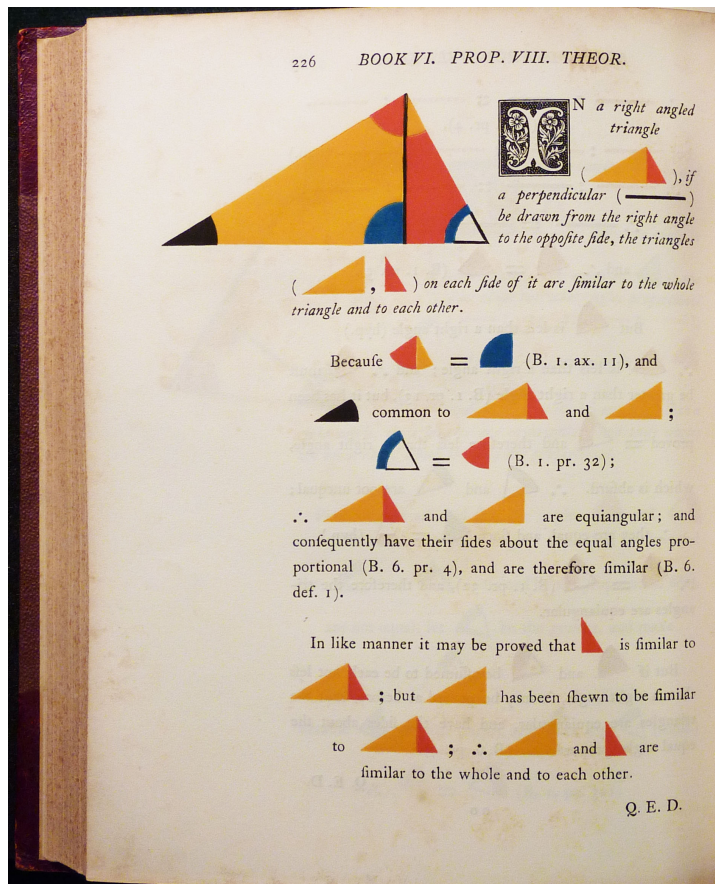 226 BOOK VI. PROP. VIII. THEOR.
IN a right angled
triangle
( ), if
a perpendicular ( )
be drawn from the right angle
to the oppoſite ſide, the triangles
( , ) on each ſide of it are ſimilar to the whole
triangle and to each other.
Becauſe = (B. 1. ax. 11), and
common to and ;
= (B. 1. pr. 32);
∴ and are equiangular; and
conſequently have their ſides about the equal angles pro-
portional (B. 6. pr. 4), and are therefore ſimilar (B. 6.
def. 1).
In like manner it may be proved that is ſimilar to
; but has been ſhewn to be ſimilar
to ; ∴ and are
ſimilar to the whole and to each other.
Q. E. D.